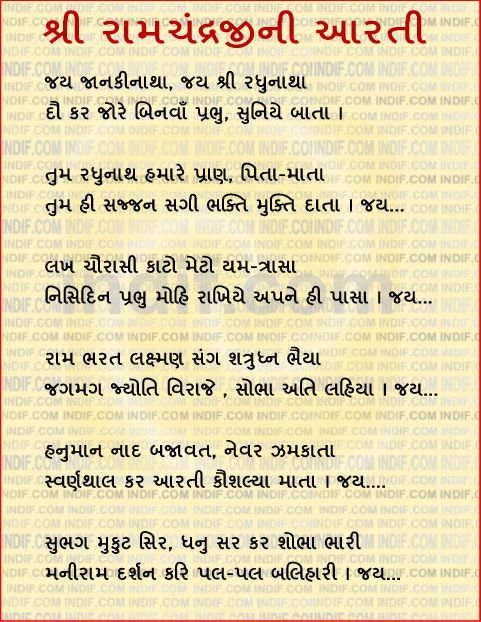 શ્રી રામચંદ્રજીની આરતી
જય જાનકીનાથા, જય શ્રી રધુનાથા
દૌ કર જોરે બિનવૉં પ્રભુ, સુનિયે બાતા ।
તુમ રધુનાથ હમારે પ્રાણ, પિતા-માતા
તુમ હી સજ્જન સગી ભક્તિ મુક્તિ દાતા । જય...
લખ ચૌરાસી કાટો મેટો યમ-ત્રાસા
નિસિદિન પ્રભુ મોહિ રાખિયે અપને હી પાસા । જય...
રામ ભરત લક્ષ્મણ સંગ શત્રુધ્ન ભૈયા
જગમગ જ્યોતિ વિરાજે , સોભા અતિ લહિયા । જય...
હનુમાન નાદ બજાવત, નેવર ઝમકાતા
સ્વર્ણથાલ કર આરતી કૌશલ્યા માતા । જય....
સુભગ મુકુટ સિર, ધનુ સર કર શોભા ભારી
મનીરામ દર્શન કરિ પલ-પલ બલિહારી । જય...
indif.com
INDIF.COM